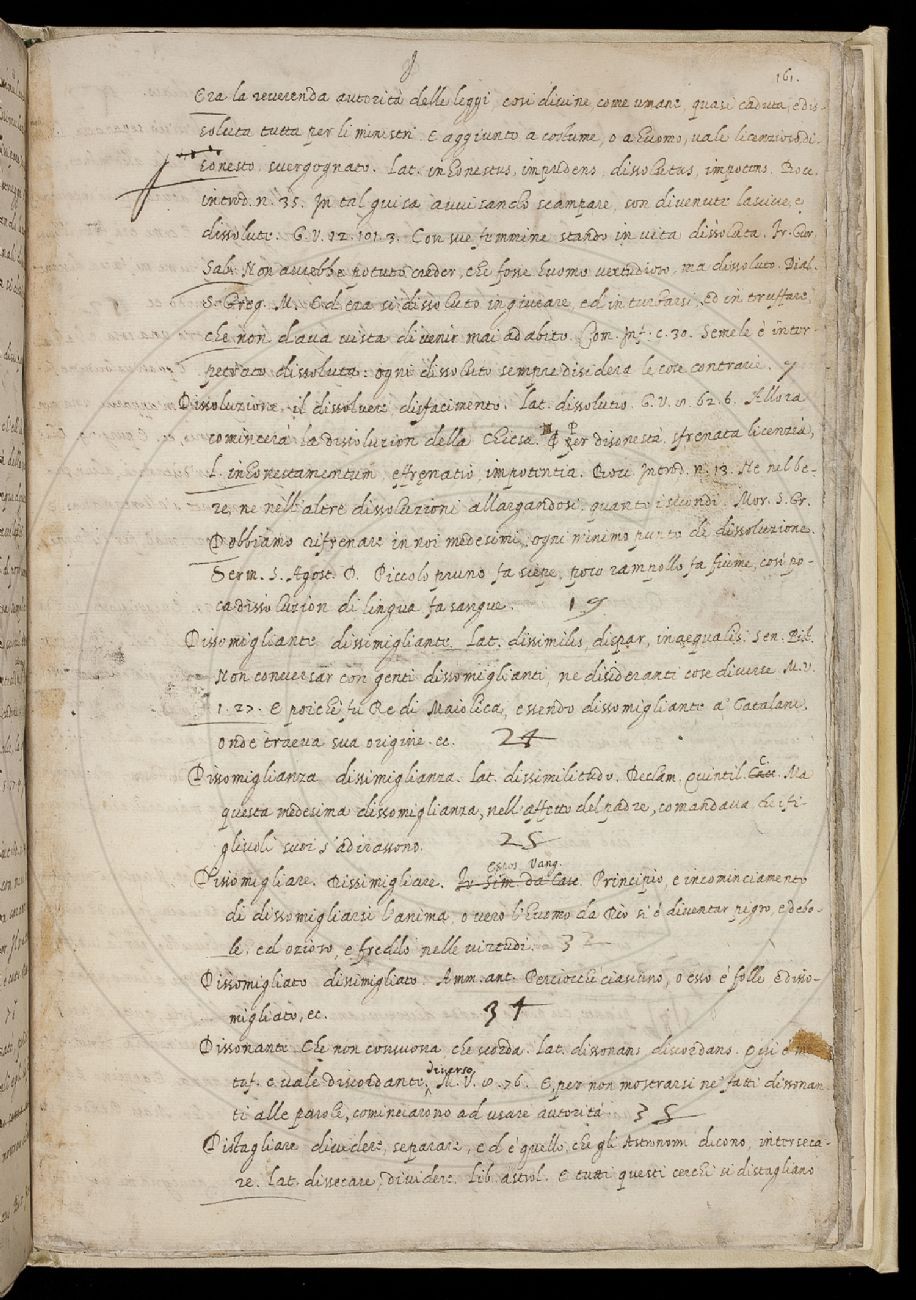 161.
Era la reverenda autorità delle leggi, così divine, come umane, quasi caduta, e dis-
soluta tutta per li ministri. E aggiunto a costume, o a huomo, vale licenzioso, di-
sonesto, svergognato. Lat. inhonestus, impudens, dissolutus, impotens. Bocc.
introd. n. 35. In tal guisa avvisando scampare, son divenute lascive, e
dissolute. G. V. 12. 101. 3. Con sue femmine stando in vita dissoluta. Fr. Gior.
Salv. Non avrebbe potuto creder, che fosse huomo vertudioso, ma dissoluto. Dial.
S. Greg. M. Ed era sì dissoluto in giucare, ed in turbarsi, ed in truffare,
che non dava vista di venir mai ad abito. Com. Inf. c. 30. Semele è inter-
petrato dissoluta: ogni dissoluto sempre disidera le cose contrarie. 7
Dissoluzione, il dissolvere, disfacimento. Lat. dissolutio. G. V. 10. 62. 6. Allora
comincerà la dissoluzion della chiesa. per disonestà, sfrenata licenzia,
l. inhonestamentum, effrenatio, impotentia. Bocc. Introd. n. 13. Ne nel be-
re, ne nell'altre dissoluzioni allargandosi, quanto i secondi. Mor. S. Gr.
Dobbiamo rifrenare in noi medesimi, ogni minimo punto di dissoluzione.
Serm. S. Agost. D. Piccolo pruno fa siepe, poco rampollo fa fiume, così po-
ca dissoluzion di lingua fa sangue. 19
Dissomigliante dissimigliante. Lat. dissimilis, dispar, inaequalis. Sen. Pist.
Non conversar con genti dissomiglianti, ne disideranti cose diverse M. V.
1. 27. E poiche fu Re di Maiolica, essendo dissomigliante a' Catalani.
onde traeva sua origine. ec. 24
Dissomiglianza dissimiglianza. Lat. dissimilitudo. Declam. Quintil. C. Ma
questa medesima dissomiglianza, nell'affetto del padre, comandava che i fi-
gliuoli suoi s'adirassono. 25
Dissomigliare. Dissimigliare. Espos. Vang. Principio, e incominciamento
di dissomigliarsi l'anima, o vero l'huomo da Dio si è diventar pigro, e debo-
le, ed ozioso, e freddo nelle virtudi. 32
Dissomigliato dissimigliato. Amm. ant. Perciocche ciascuno, o esso è folle e disso-
migliato, ec. 34
Dissonante. Che non consuona, che scorda. Lat. dissonans, discordans. Qui è me
taf. e vale discordante, diverso. M. V. 10. 76. E per non mostrarsi ne' fatti dissonan-
ti alle parole, cominciarono ad usare autorità. 35
Distagliare dividere, separare, ed è quello, che gli Astronomi dicono, interseca-
re. Lat. dissecare, dividere. Lib. astrol. E tutti questi cerchi si distagliano